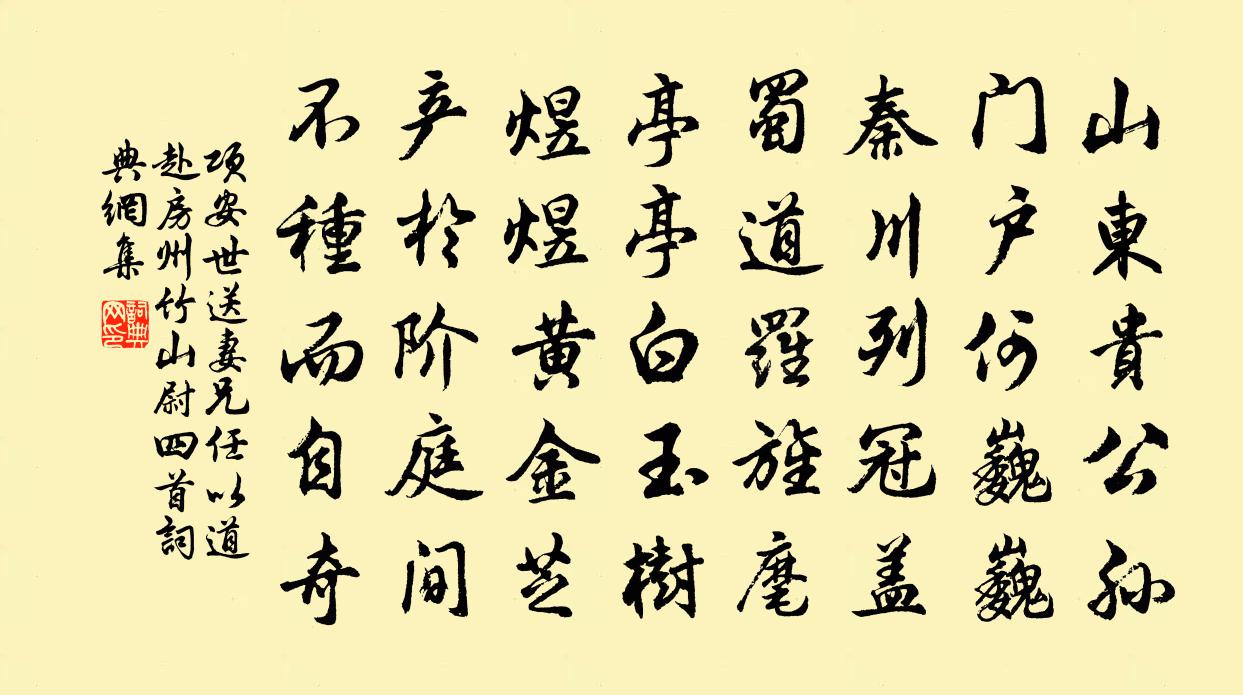 山東貴公孫
门户何巍巍
秦川列冠盖
蜀道羅旌麾
亭亭白玉樹
煜煜黄金芝
产於阶庭间
不種而自奇
項安世送妻兄任以道
赴房州竹山尉四首詞
典網集
詞典
网印